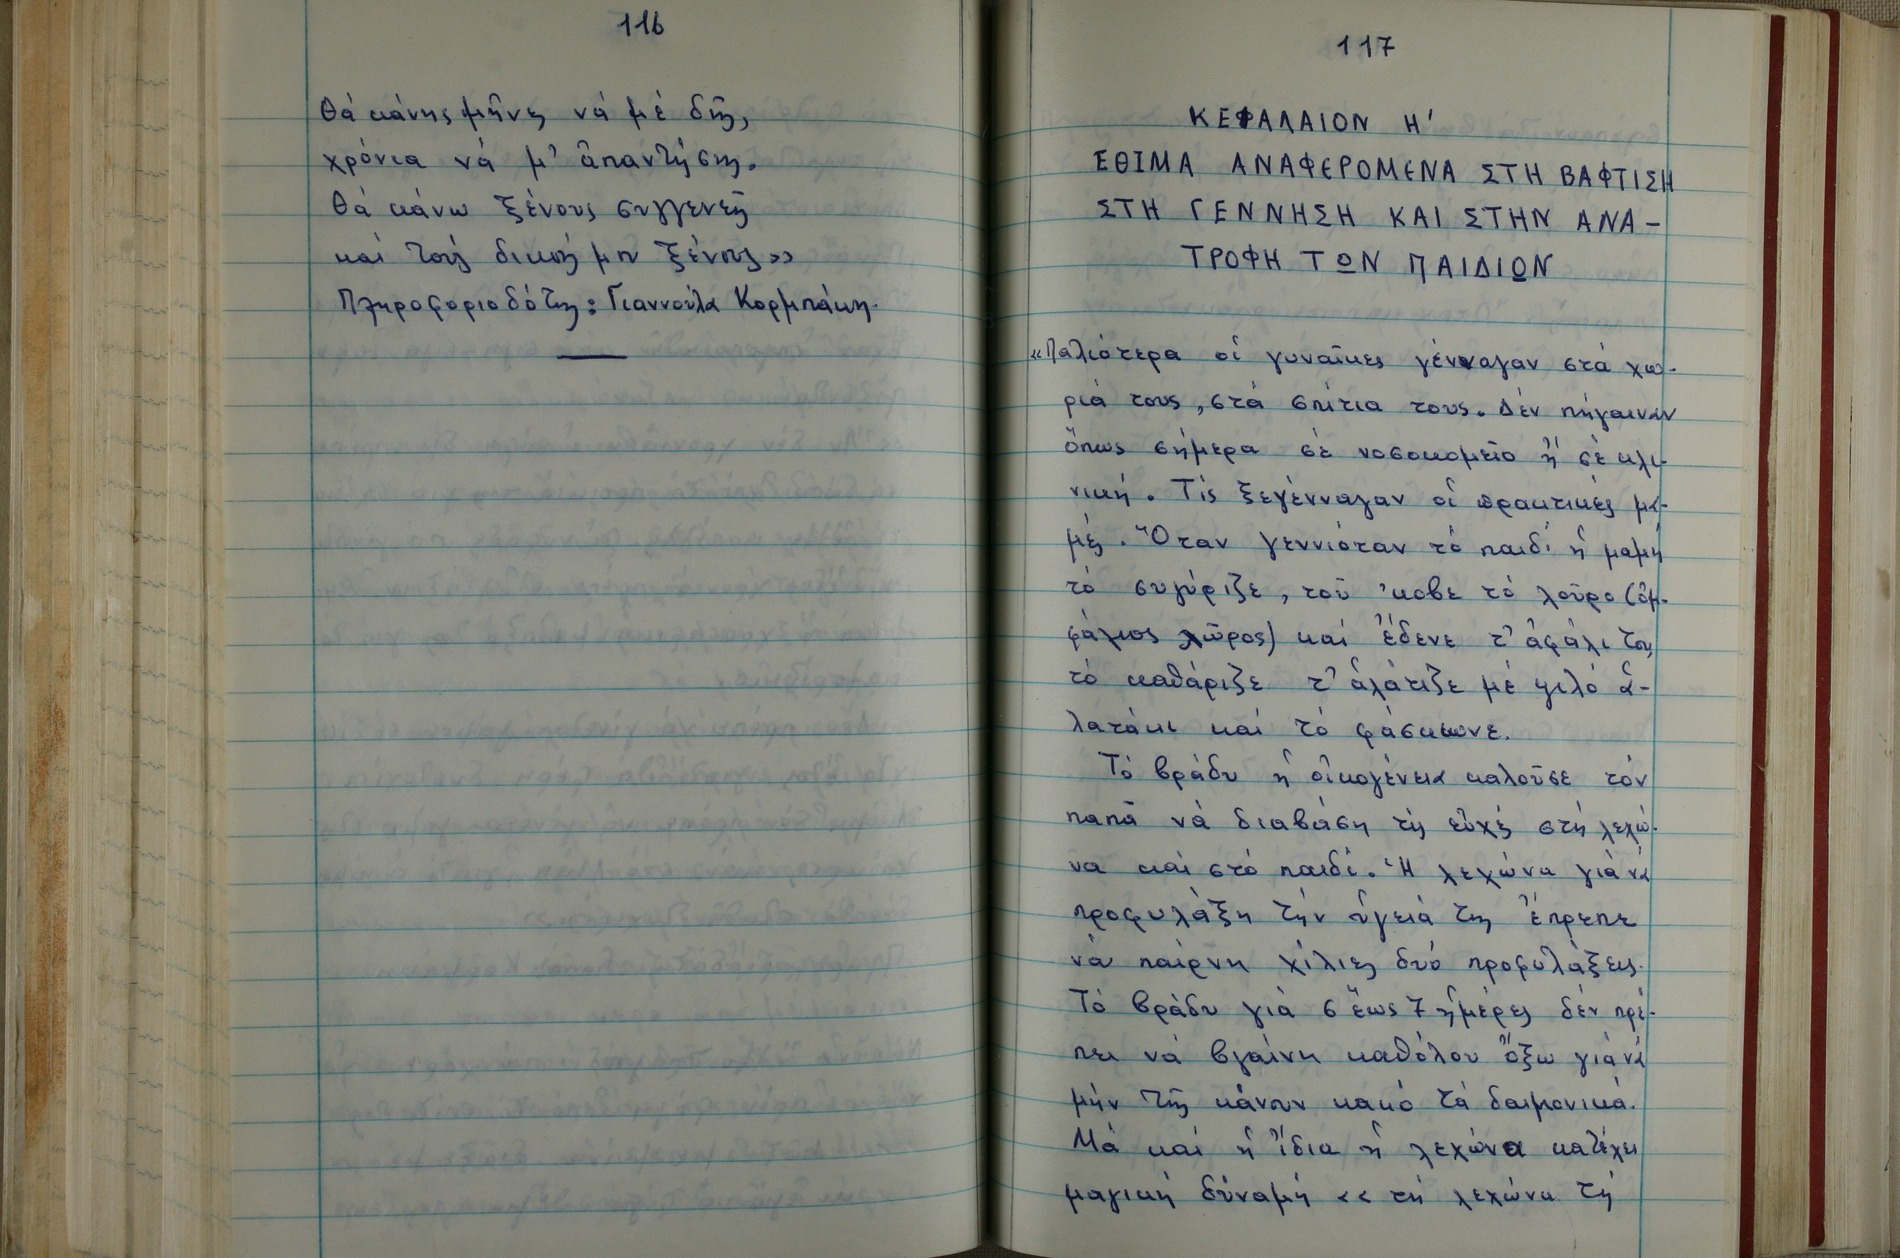 116
θά κάνης μῆνες νά μέ δῆς,
χρόνια νά μ' ἀπαντήσης.
Θά κάνω ξένους συγγενεῖς
καί τούς δικούς μου ξένους»
Πληροφοριοδότης: Γιαννούλα Κορμπάκη.
117
ΚΕΦΑΛΑΙΟΝ Η'
ΕΘΙΜΑ ΑΝΑΦΕΡΟΜΕΝΑ ΣΤΗ ΒΑΦΤΙΣΗ
ΣΤΗ ΓΕΝΝΗΣΗ ΚΑΙ ΣΤΗΝ ΑΝΑ-
ΤΡΟΦΗ ΤΩΝ ΠΑΙΔΙΩΝ
«Παλιότερα οἱ γυναῖκες γένναγαν στά χω-
ριά τους, στά σπίτια τους. Δέν πήγαιναν
ὅπως σήμερα σέ νοσοκομεῖο ἤ σέ κλι-
νική. Τίς ξεγένναγαν οἱ πρακτικές μα-
μές. Ὅταν γεννιόταν τό παιδί ἡ μαμή
τό συγύριζε, τοῦ 'κοβε τό λοῦρο (ὀμ-
φάλιος λῶρος) καί ἔδενε τ' ἀφάλι του,
τό καθάριζε τ' ἁλάτιζε μέ ψιλό ἁ-
λατάκι καί τό φάσκιωνε.
Τό βράδυ ἡ οἰκογένεια καλοῦσε τόν
παπᾶ νά διαβάση τίς εὐχές στή λεχώ-
να καί στό παιδί. Ἡ λεχώνα γιά νά
προφυλάξη τήν ὑγειά της ἔπρεπε
νά παίρνη χίλιες δυό προφυλάξεις.
Τό βράδυ γιά 6 ἕως 7 ἡμέρες δέν πρέ-
πει νά βγαίνη καθόλου ὄξω γιά νά
μήν τῆς κάνουν κακό τά δαιμονικά.
Μά καί ἡ ἴδια ἡ λεχώνα κατέχει
μαγική δύναμη «τή λεχώνα τή